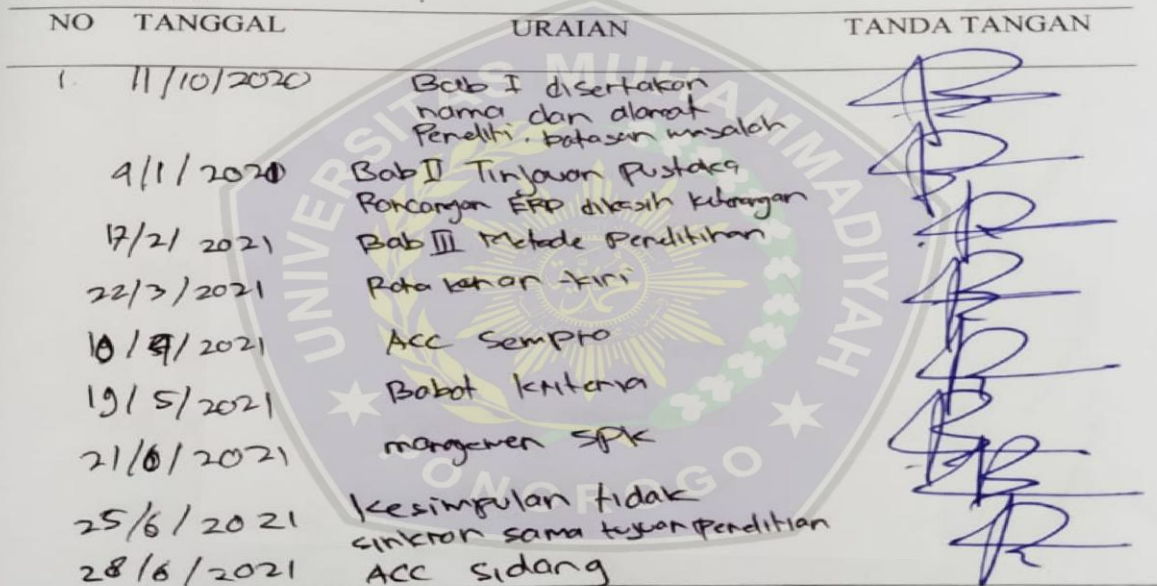 NO TANGGAL URAIAN TANDA TANGAN
1. 11/10/2020 Bab I disertakan
nama dan alamat
Peneliti. batasan masalah
4/1/2021 Bab II Tinjauan Pustaka
Rancangan ERD dikasih keterangan
17/2/2021 Bab III Metode Penelitihan
22/3/2021 Rata kanan-kiri
10/4/2021 ACC Sempro
19/5/2021 Bobot kriteria
21/6/2021 managemen SPK
25/6/2021 Kesimpulan tidak
sinkron sama tujuan penelitian
28/6/2021 ACC Sidang
UNIVERSITAS MUHAMMADIYAH
PONOROGO